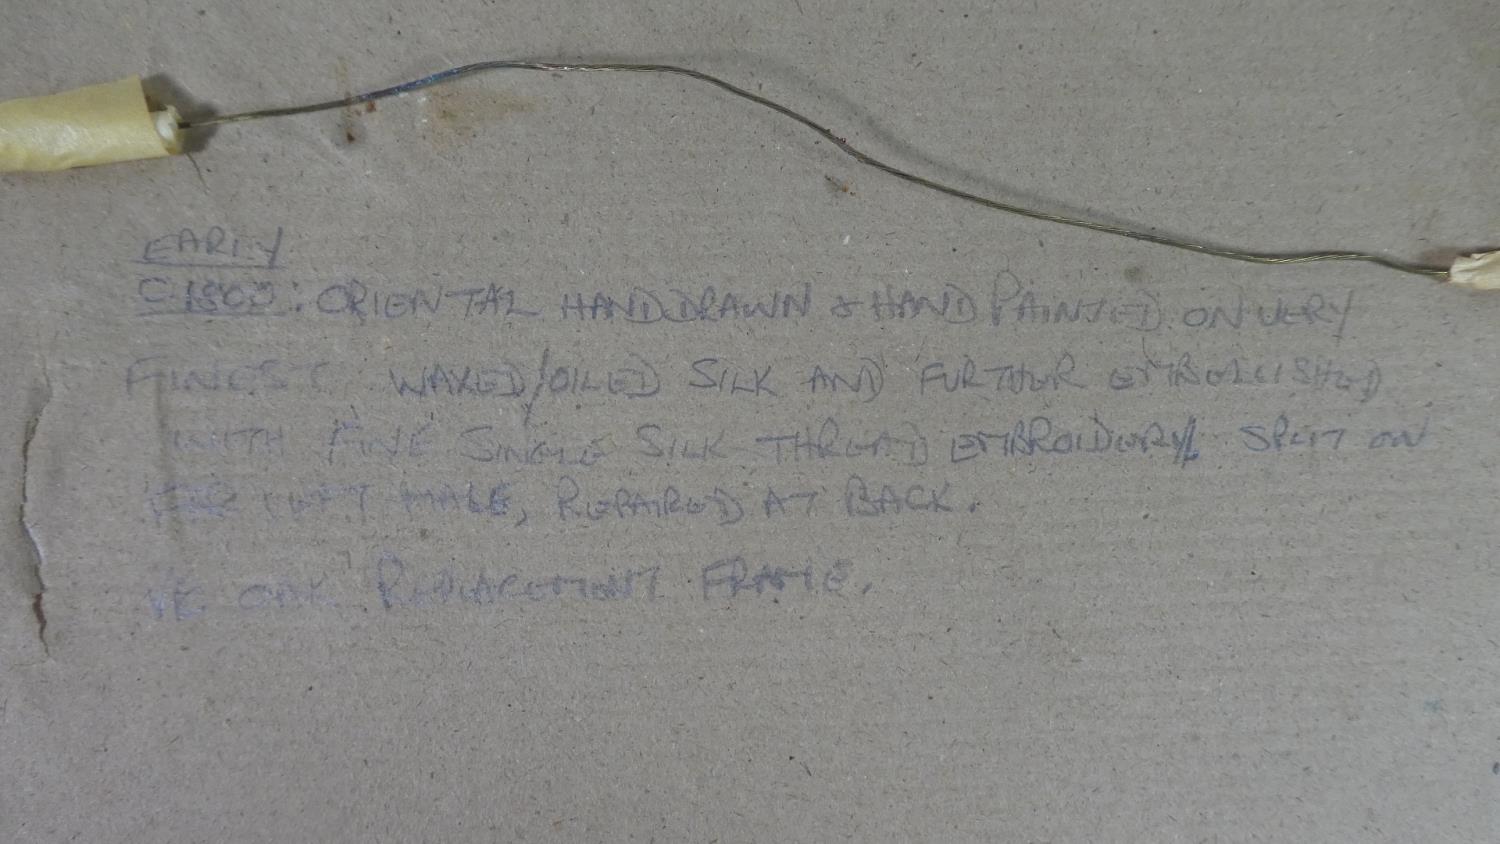 EARLY
C.1800: ORIENTAL HAND DRAWN & HAND PAINTED ON VERY
FINEST WAXED/OILED SILK AND FURTHUR EMBELLISHED
WITH FINE SINGLE SILK THREAD EMBROIDERY. SPLIT ON
FAR LEFT MALE, REPAIRED AT BACK.
OAK REPLACEMENT FRAME.